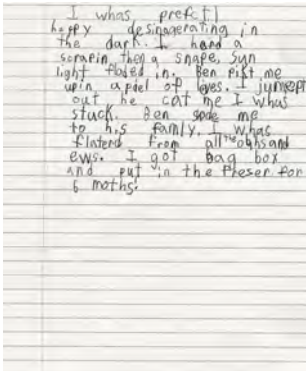 I whas prefctl
happy desinagerating in
the dark. I hard a
scrapin then a snape, sun
light floded in. Ben pikt me
up in a pdel of loves. I jumept
out he cat me I whas
stuck. Ben sode me
to his famly. I whas
flaterd from all the oohs and
ews. I got bag box
and put in the freser for
6 moths!